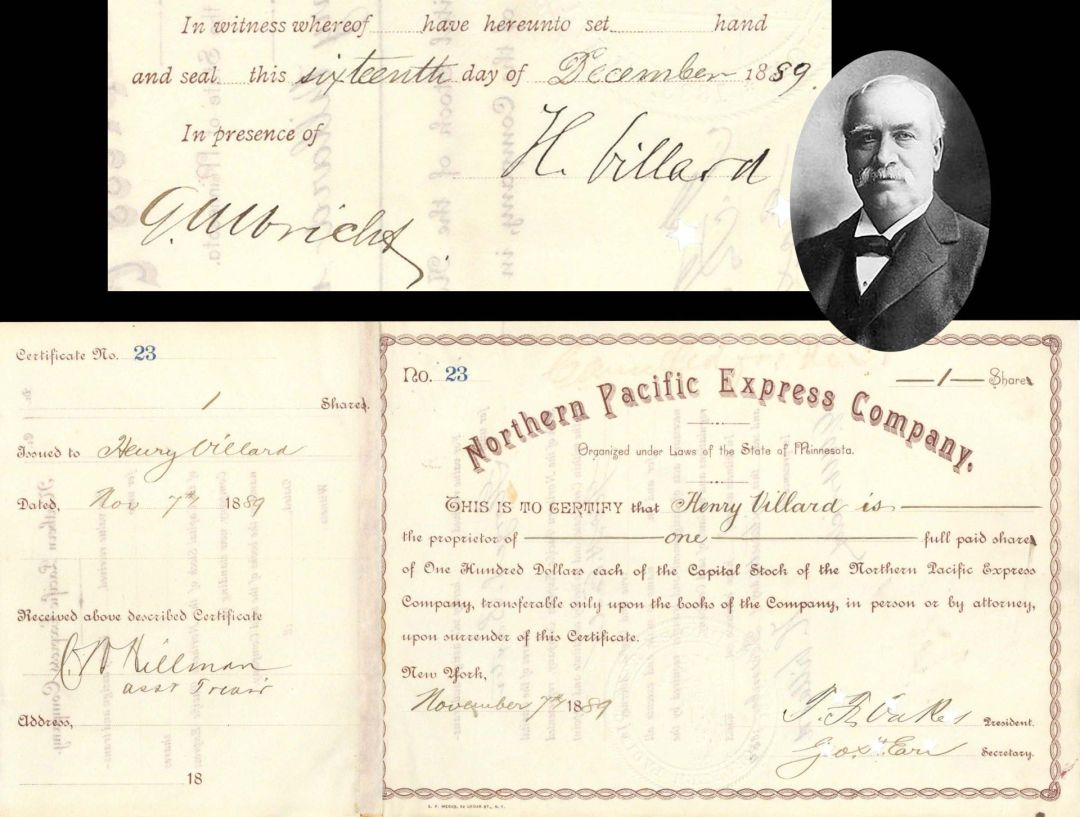 In witness whereof have hereunto set hand
and seal this sixteenth day of December 1889.
In presence of
H. Villard
G. Ulbricht
Certificate No. 23
1 Shares.
Issued to Henry Villard
Dated, Nov 7th 1889
Received above described Certificate
C W Hillman
asst Treasr
Address,
18
No. 23
1 Share
Northern Pacific Express Company.
Organized under Laws of the State of Minnesota.
THIS IS TO CERTIFY that Henry Villard is
the proprietor of one full paid share
of One Hundred Dollars each of the Capital Stock of the Northern Pacific Express
Company, transferable only upon the books of the Company, in person or by attorney,
upon surrender of this Certificate.
New York,
November 7th 1889
T. F. Oakes President.
Secretary.